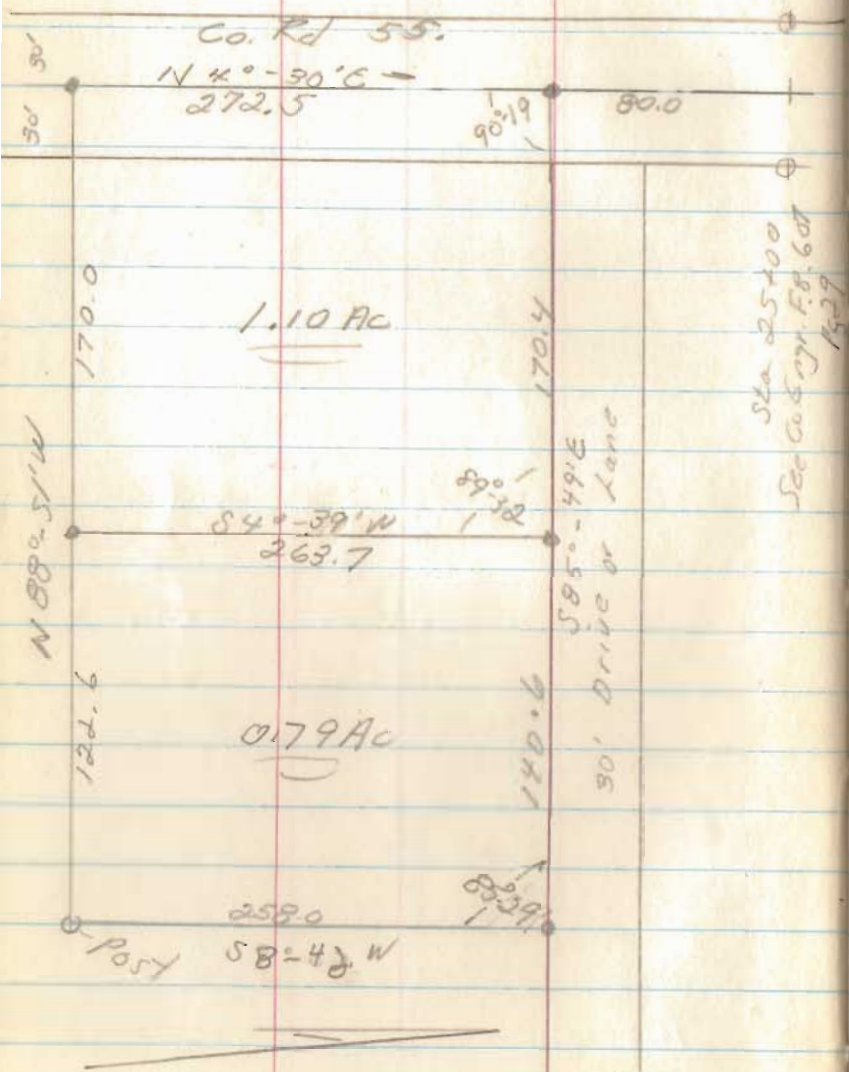 Co. Rd 55.
30'
30'
N 4°-30'E
272.5
90°-19'
80.0
170.0
1.10 Ac
170.4
Sta 25+00
See Co Engr. F.B. 607
N 88°-51'W
S4°-39'W
263.7
89°-32'
S85°-49'E
30' Drive or Lane
122.6
0.79 Ac
140.6
258.0
Post